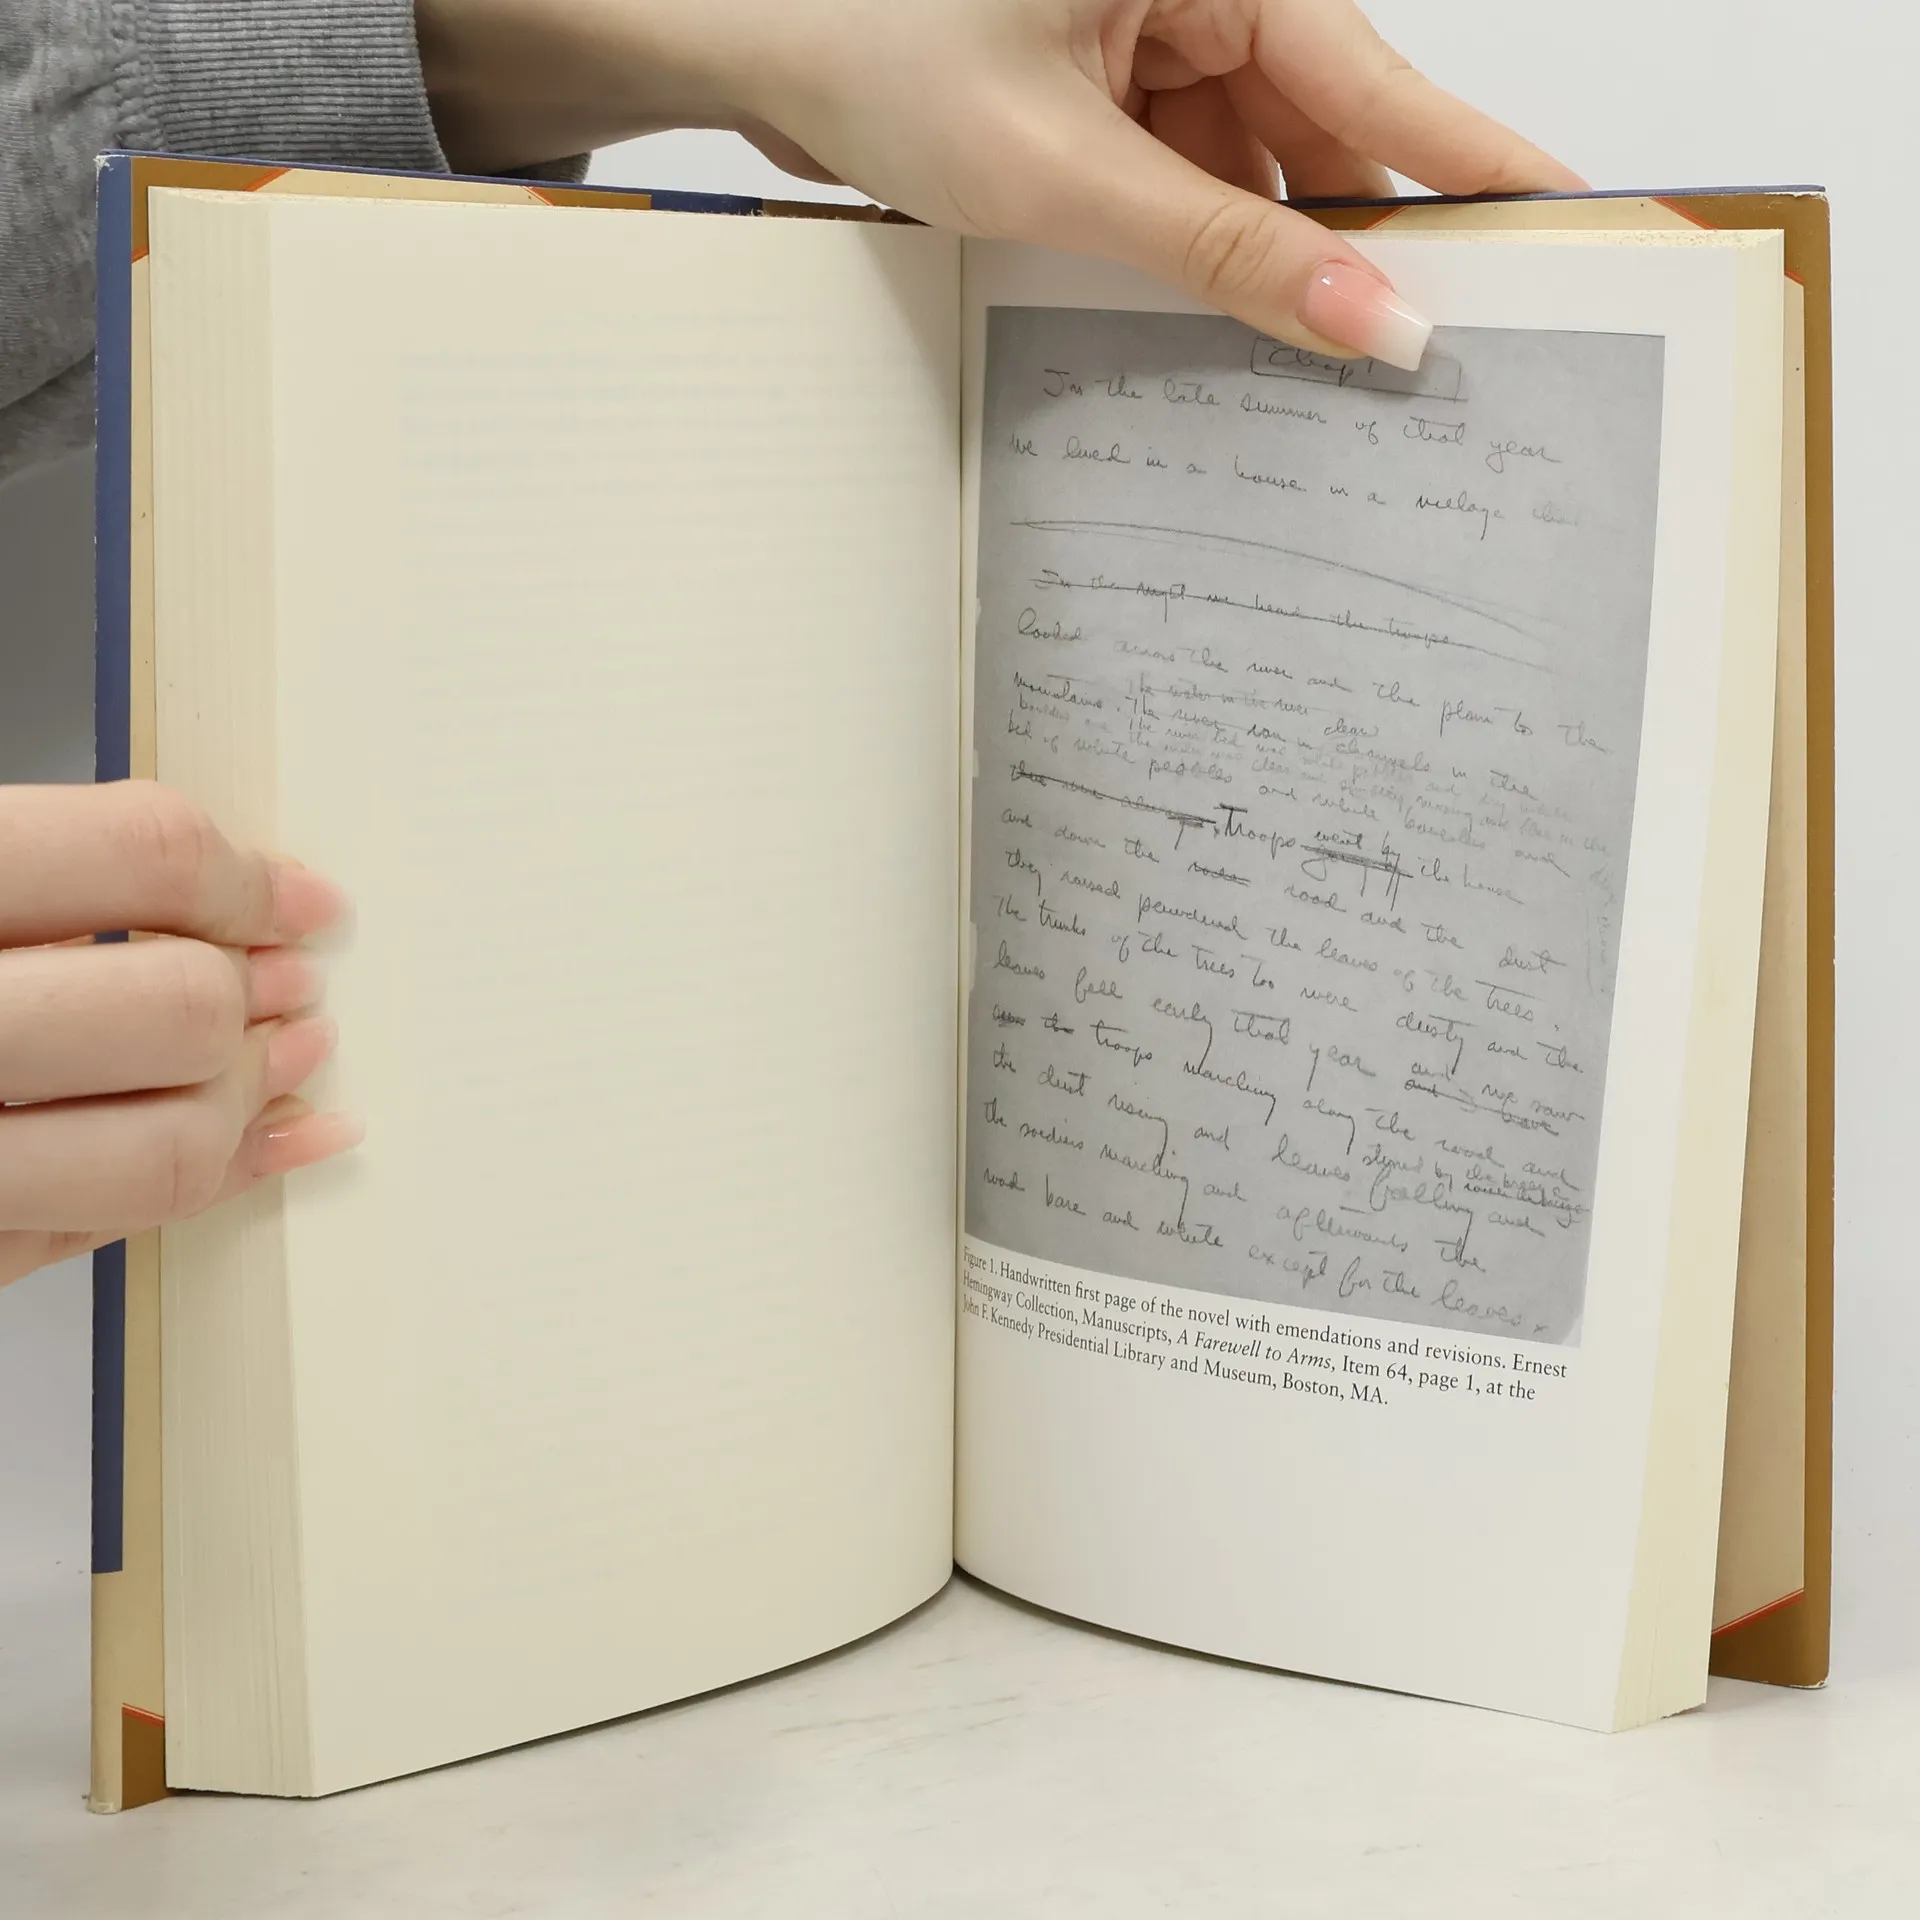 Chap 1
In the late summer of that year
we lived in a house in a village that
In the night we heard the troops
looked across the river and the plain to the
The water in the river
mountains. The river ran in clear channels in the
The river bed was white pebbles and dry white
boulders and the water was clear and swiftly moving and blue in the
bed of white pebbles and white boulders and
Troops going went by the house
and down the road and the dust
they raised powdered the leaves of the trees.
The trunks of the trees too were dusty and the
leaves fell early that year and and we saw
the troops marching along the road and
the dust rising and leaves stirred by the breeze falling and
the soldiers marching and afterwards the
road bare and white except for the leaves.
Figure 1. Handwritten first page of the novel with emendations and revisions. Ernest
Hemingway Collection, Manuscripts, A Farewell to Arms, Item 64, page 1, at the
John F. Kennedy Presidential Library and Museum, Boston, MA.